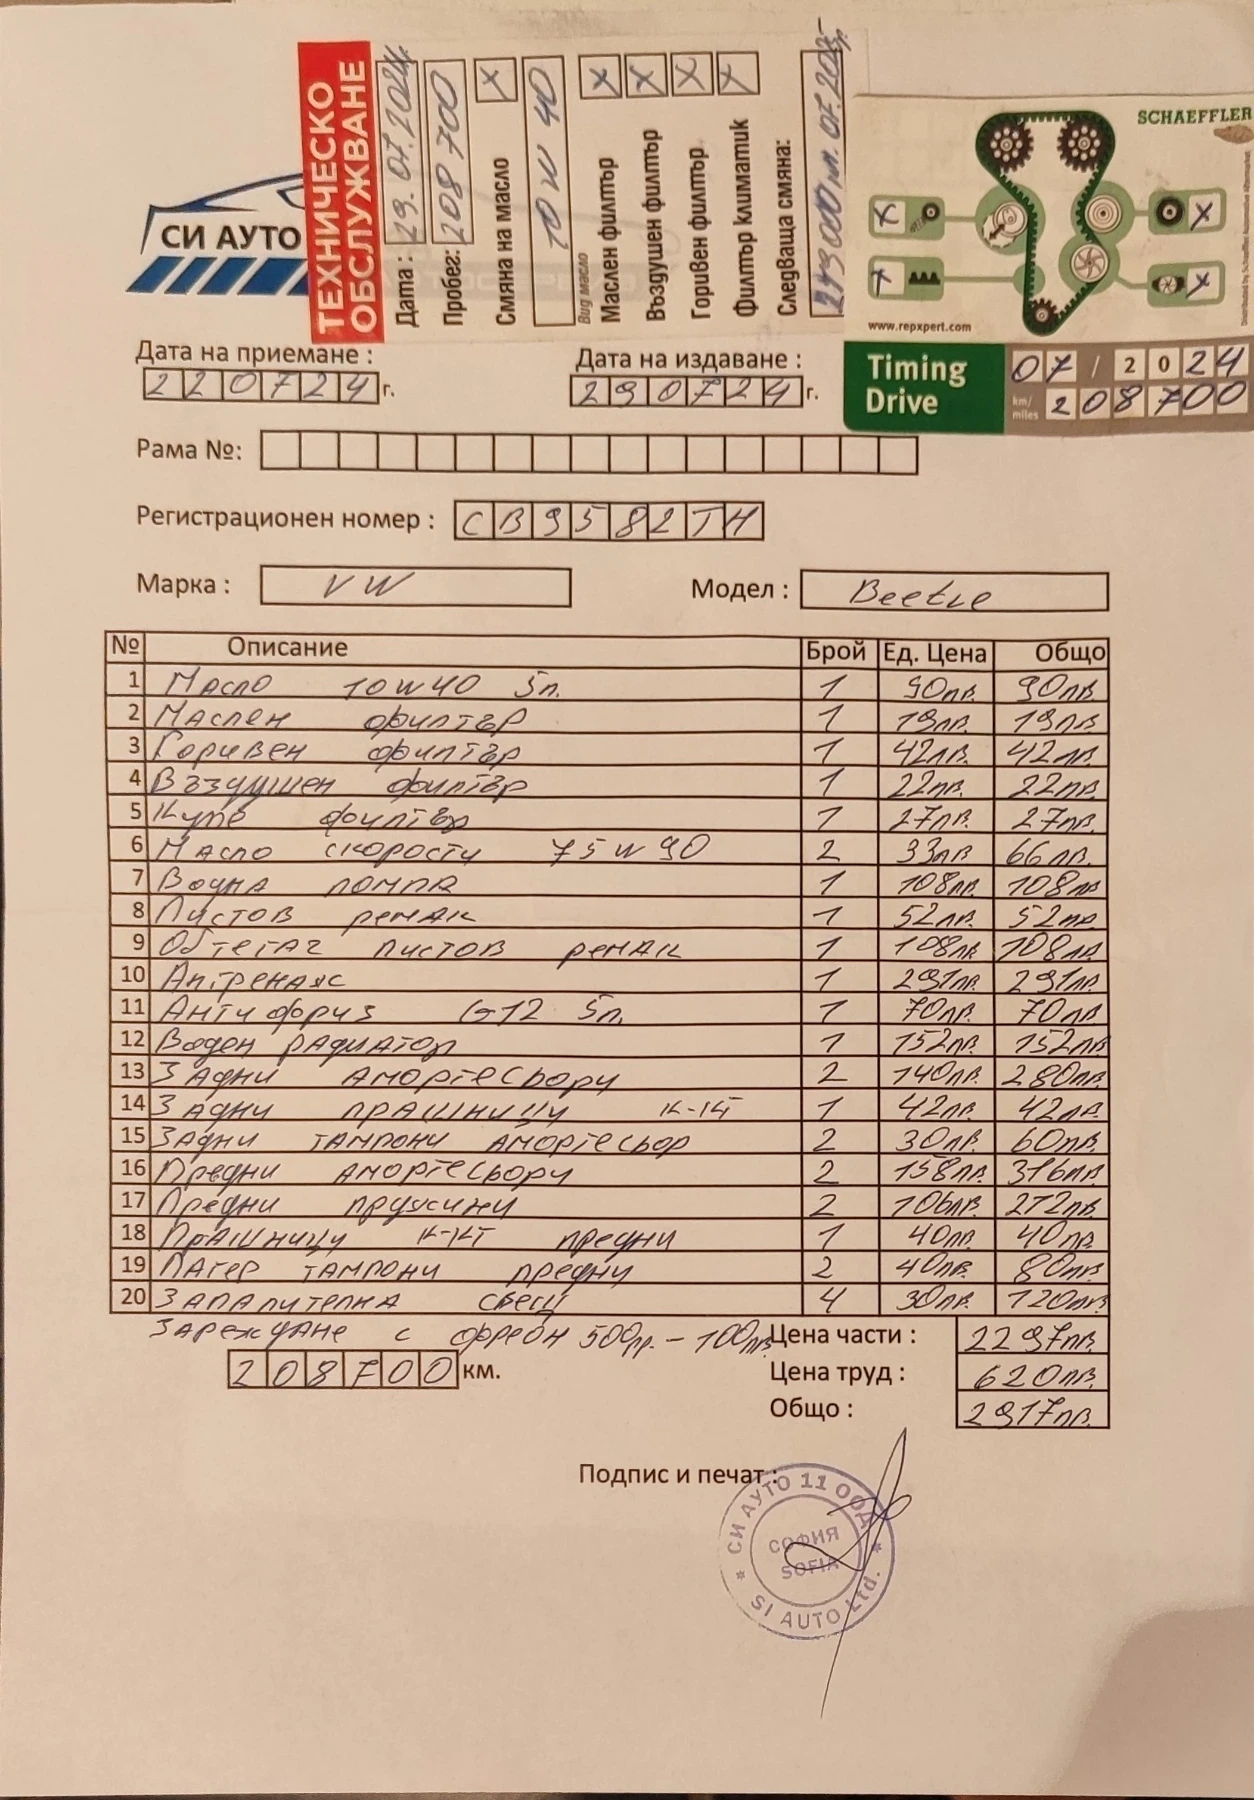 СИ АУТО
ТЕХНИЧЕСКО
ОБСЛУЖВАНЕ
Дата : 29.07.2024г.
Пробег: 208 700
Смяна на масло X
10W40
Вид масло
Маслен филтър X
Въздушен филтър X
Горивен филтър X
Филтър климатик X
Следваща смяна:
07.2025г.
SCHAEFFLER
www.repxpert.com
Timing
Drive
07 / 2024
km/
miles 208700
Дата на приемане :
220724 г.
Дата на издаване :
290724 г.
Рама №:
Регистрационен номер : СВ9582ТН
Марка : VW
Модел : Beetle
№ Описание Брой Ед. Цена Общо
1 Масло 10W40 5л. 1 90лв. 90лв.
2 Маслен филтър 1 19лв. 19лв
3 Горивен филтър 1 42лв. 42лв.
4 Въздушен филтър 1 22лв. 22лв.
5 Купе филтър 1 27лв. 27лв.
6 Масло скорости 75W90 2 33лв 66лв.
7 Водна помпа 1 108лв. 108лв
8 Пистов ремак 1 52лв. 52лв.
9 Обтегач пистов ремак 1 108лв 108лв.
10 Алтренаяс 1 291лв. 291лв.
11 Антифриз G12 5л. 1 70лв. 70лв.
12 Воден радиатор 1 152лв. 152лв
13 Задни амортесьори 2 140лв. 280лв.
14 Задни прашници к-кт 1 42лв. 42лв.
15 Задни тампони амортесьор 2 30лв. 60лв.
16 Предни амортесьори 2 158лв. 316лв.
17 Предни пружини 2 106лв. 212лв.
18 Прашници к-кт предни 1 40лв. 40лв.
19 Лагер тампони предни 2 40лв. 80лв.
20 Запалителна свещ 4 30лв. 120лв
Зареждане с фреон 500гр. – 100лв.
208700 км.
Цена части : 2297лв.
Цена труд : 620лв.
Общо : 2917лв.
Подпис и печат :
СИ АУТО 11 ООД
СОФИЯ
SOFIA
SI AUTO Ltd.